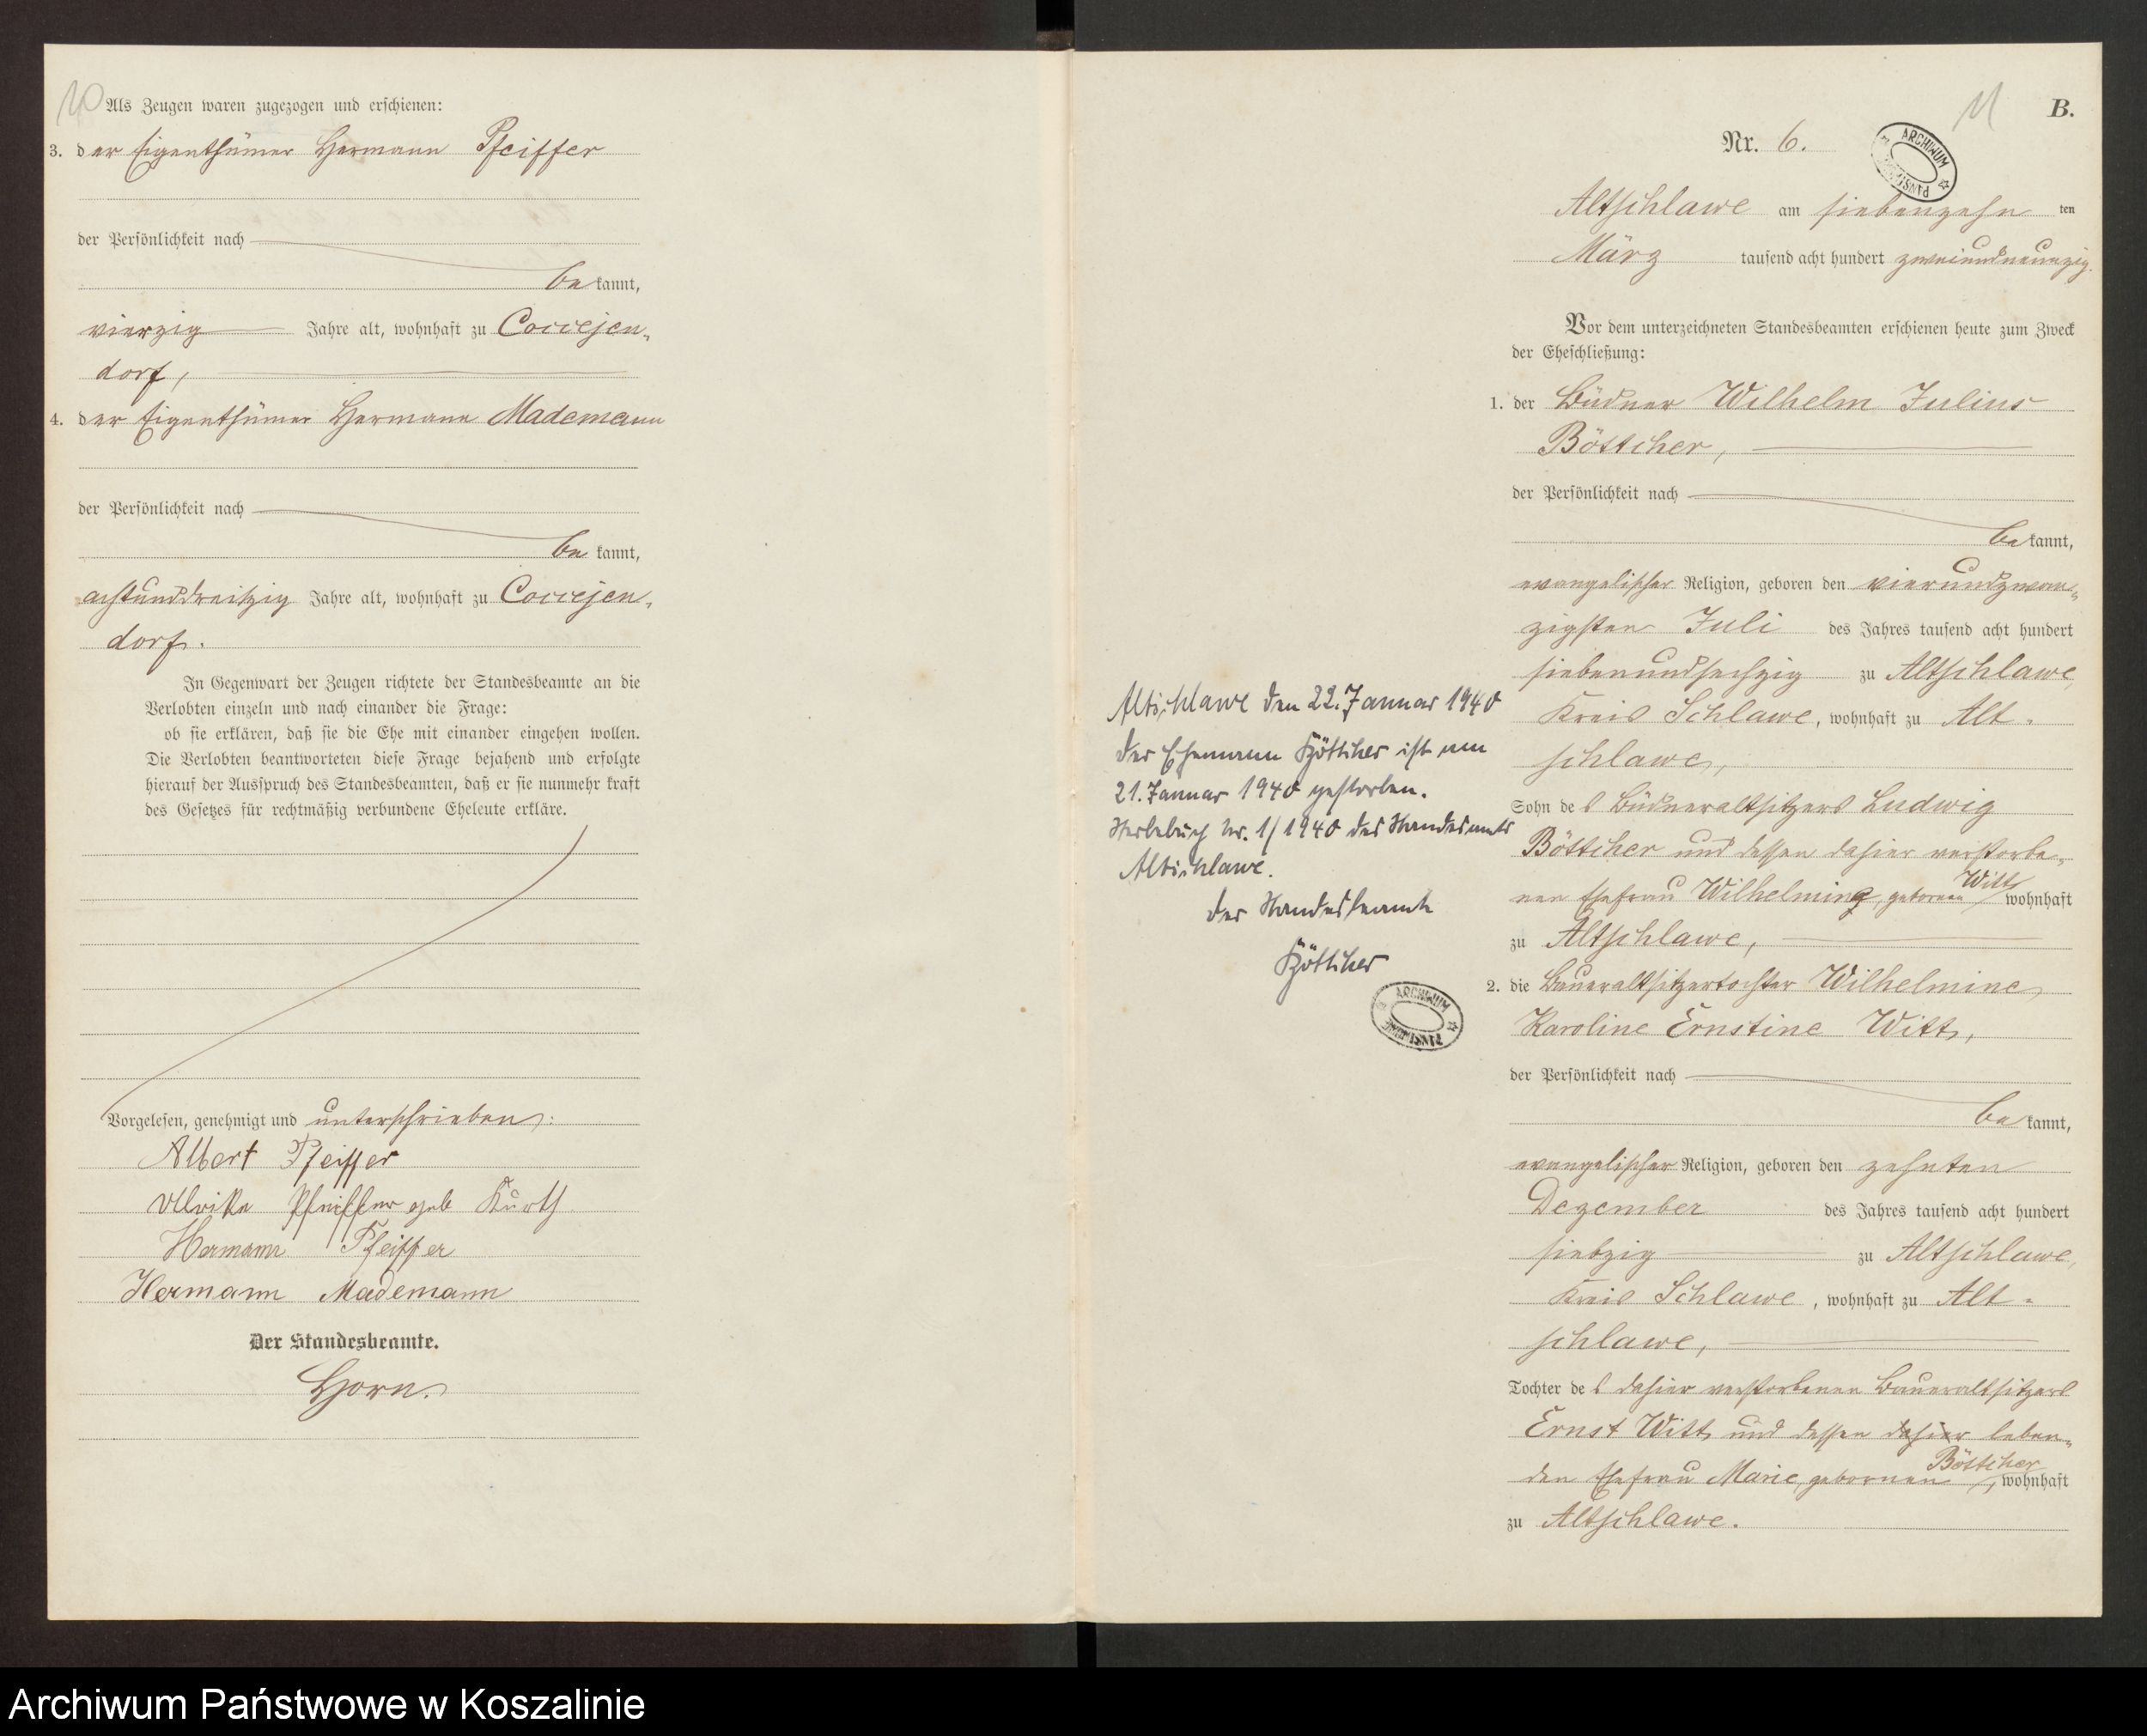 10
Als Zeugen waren zugezogen und erschienen:
3. der Eigenthümer Hermann Pfeiffer
der Persönlichkeit nach
bekannt,
vierzig Jahre alt, wohnhaft zu Coccejen-
dorf,
4. der Eigenthümer Hermann Mademann
der Persönlichkeit nach
bekannt,
achtunddreißig Jahre alt, wohnhaft zu Coccejen-
dorf.
In Gegenwart der Zeugen richtete der Standesbeamte an die
Verlobten einzeln und nach einander die Frage:
ob sie erklären, daß sie die Ehe mit einander eingehen wollen.
Die Verlobten beantworteten diese Frage bejahend und erfolgte
hierauf der Ausspruch des Standesbeamten, daß er sie nunmehr kraft
des Gesetzes für rechtmäßig verbundene Eheleute erkläre.
Vorgelesen, genehmigt und unterschrieben:
Albert Pfeiffer
Ulrike Pfeiffer geb Kurth
Hermann Pfeiffer
Hermann Mademann
Der Standesbeamte.
Horn.
11
B.
Nr. 6.
ARCHIWUM PAŃSTWOWE
Altschlawe am siebenzehn ten
März tausend acht hundert zweiundneunzig.
Vor dem unterzeichneten Standesbeamten erschienen heute zum Zweck
der Eheschließung:
1. der Büdner Wilhelm Julius
Böttcher,
der Persönlichkeit nach
bekannt,
evangelischer Religion, geboren den vierundzwan-
zigsten Juli des Jahres tausend acht hundert
siebenundsechzig zu Altschlawe,
Kreis Schlawe, wohnhaft zu Alt-
schlawe,
Sohn des Büdneraltsitzers Ludwig
Böttcher und dessen dahier verstorbe-
nen Ehefrau Wilhelmine, geborene Witt wohnhaft
zu Altschlawe,
2. die Baueraltsitzertochter Wilhelmine
Karoline Ernstine Witt,
der Persönlichkeit nach
bekannt,
evangelischer Religion, geboren den zehnten
Dezember des Jahres tausend acht hundert
siebzig zu Altschlawe,
Kreis Schlawe, wohnhaft zu Alt-
schlawe,
Tochter des dahier verstorbenen Baueraltsitzers
Ernst Witt und dessen dahier leben-
den Ehefrau Marie, gebornen Böttcher, wohnhaft
zu Altschlawe.
Altschlawe den 22. Januar 1940
Der Ehemann Böttcher ist am
21. Januar 1940 gestorben.
Sterbebuch Nr. 1/1940 des Standesamts
Altschlawe.
Der Standesbeamte
Böttcher
ARCHIWUM PAŃSTWOWE
Archiwum Państwowe w Koszalinie